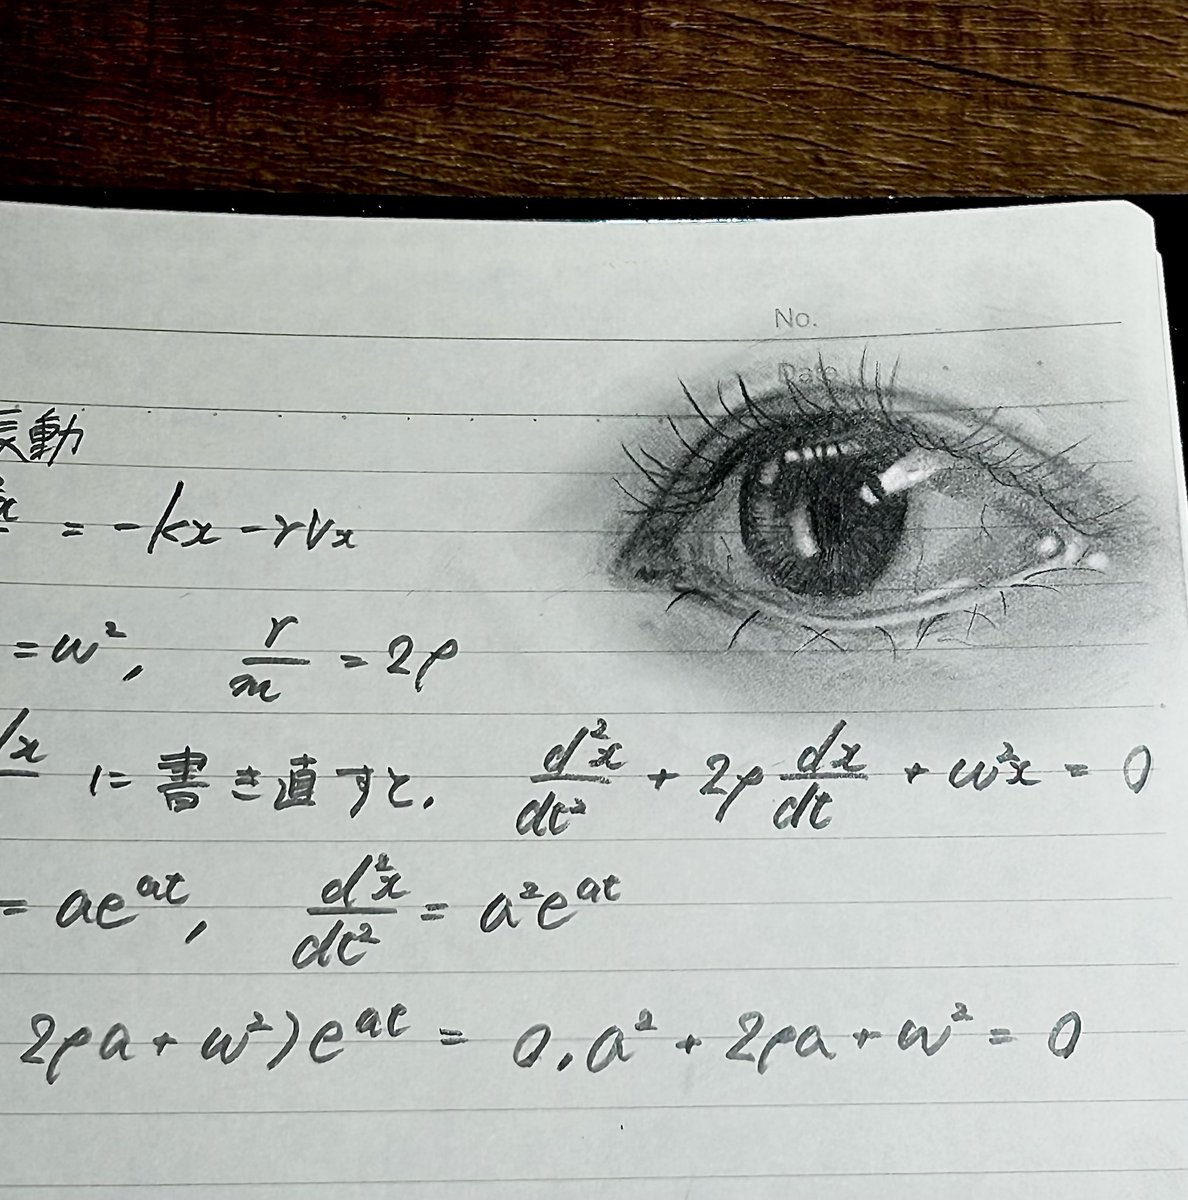 No.
Date
振動
= -kx - rVx
= ω², r/m = 2ρ
dx に書き直すと. d²x/dt² + 2ρ dx/dt + ω²x = 0
= ae^at, d²x/dt² = a²e^at
2ρa + ω²)e^at = 0. a² + 2ρa + ω² = 0